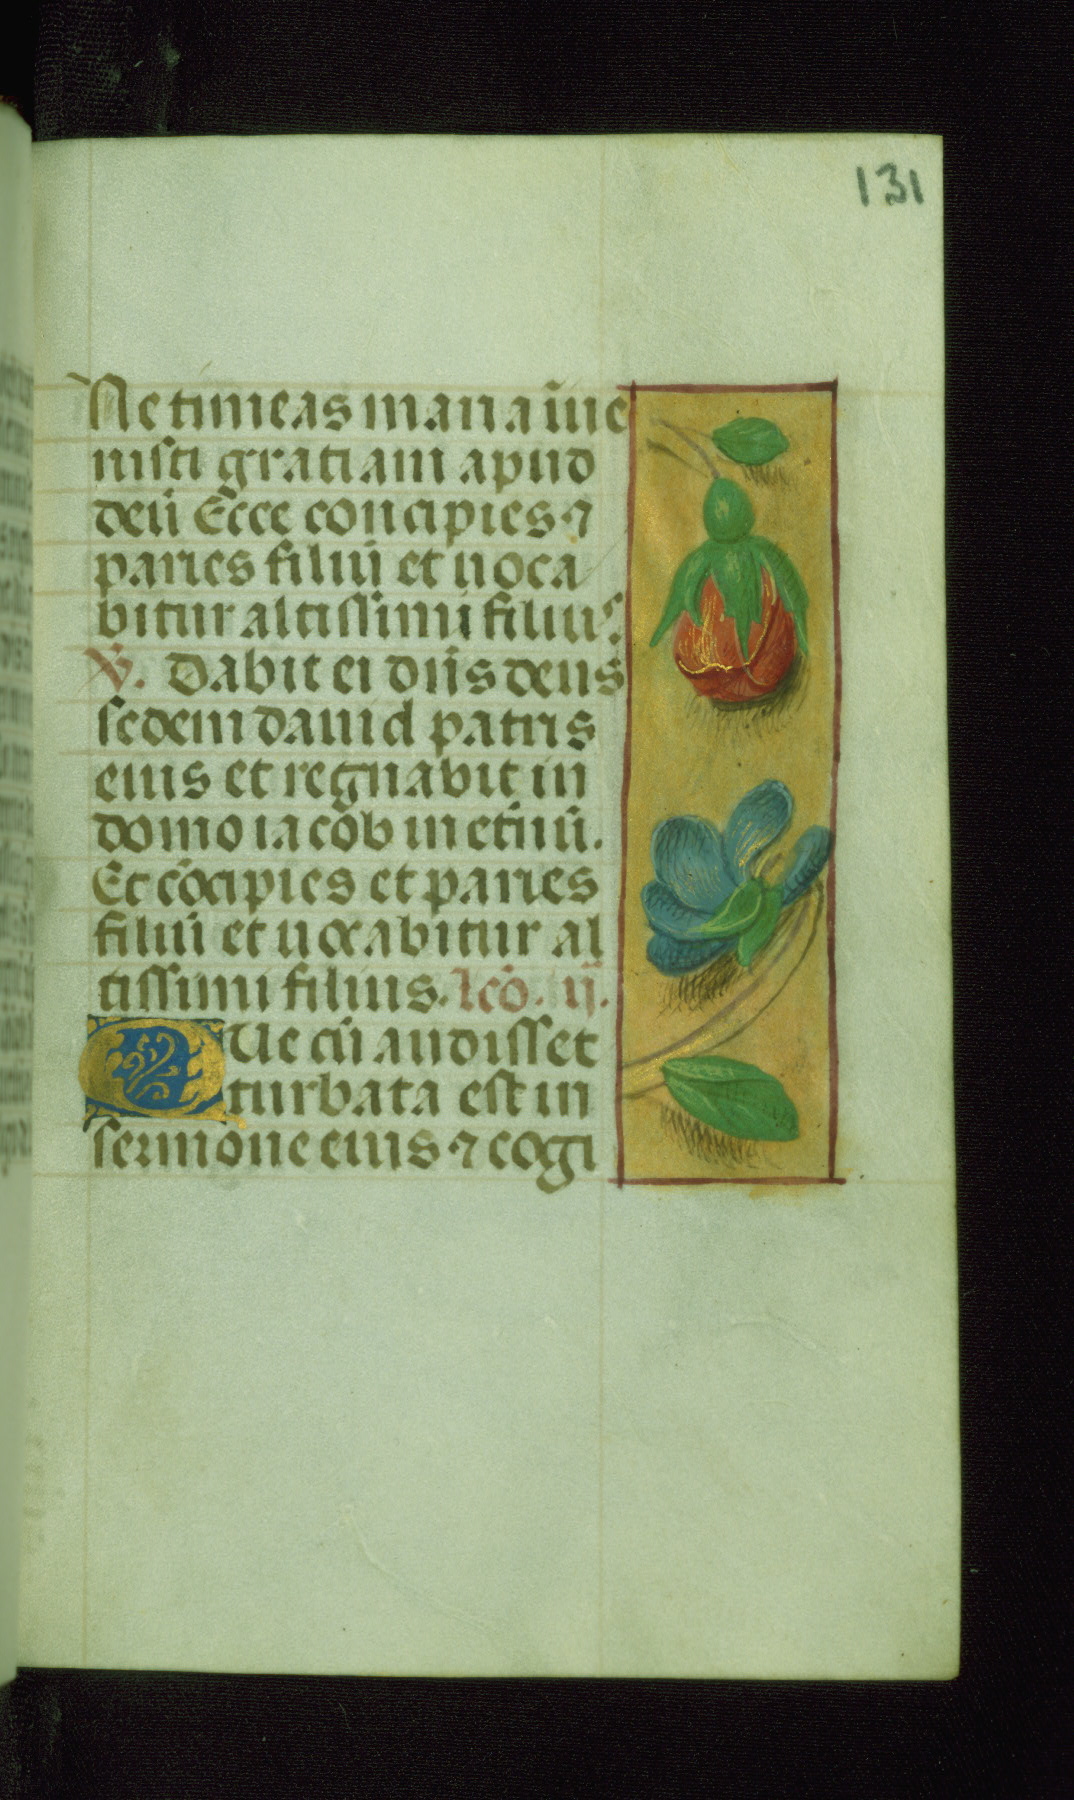 131
Ne timeas maria īue
nisti gratiam apud
deū Ecce concipies ⁊
paries filiū et uoca
bitur altissimi filius.
V̄. Dabit ei dn̄s deus
sedem dauid patris
eius et regnabit in
domo iacob in etn̄ū.
Et cōcipies et paries
filiū et uocabitur al
tissimi filius. lcō. ij.
Que cū audisset
turbata est in
sermone eius ⁊ cogi